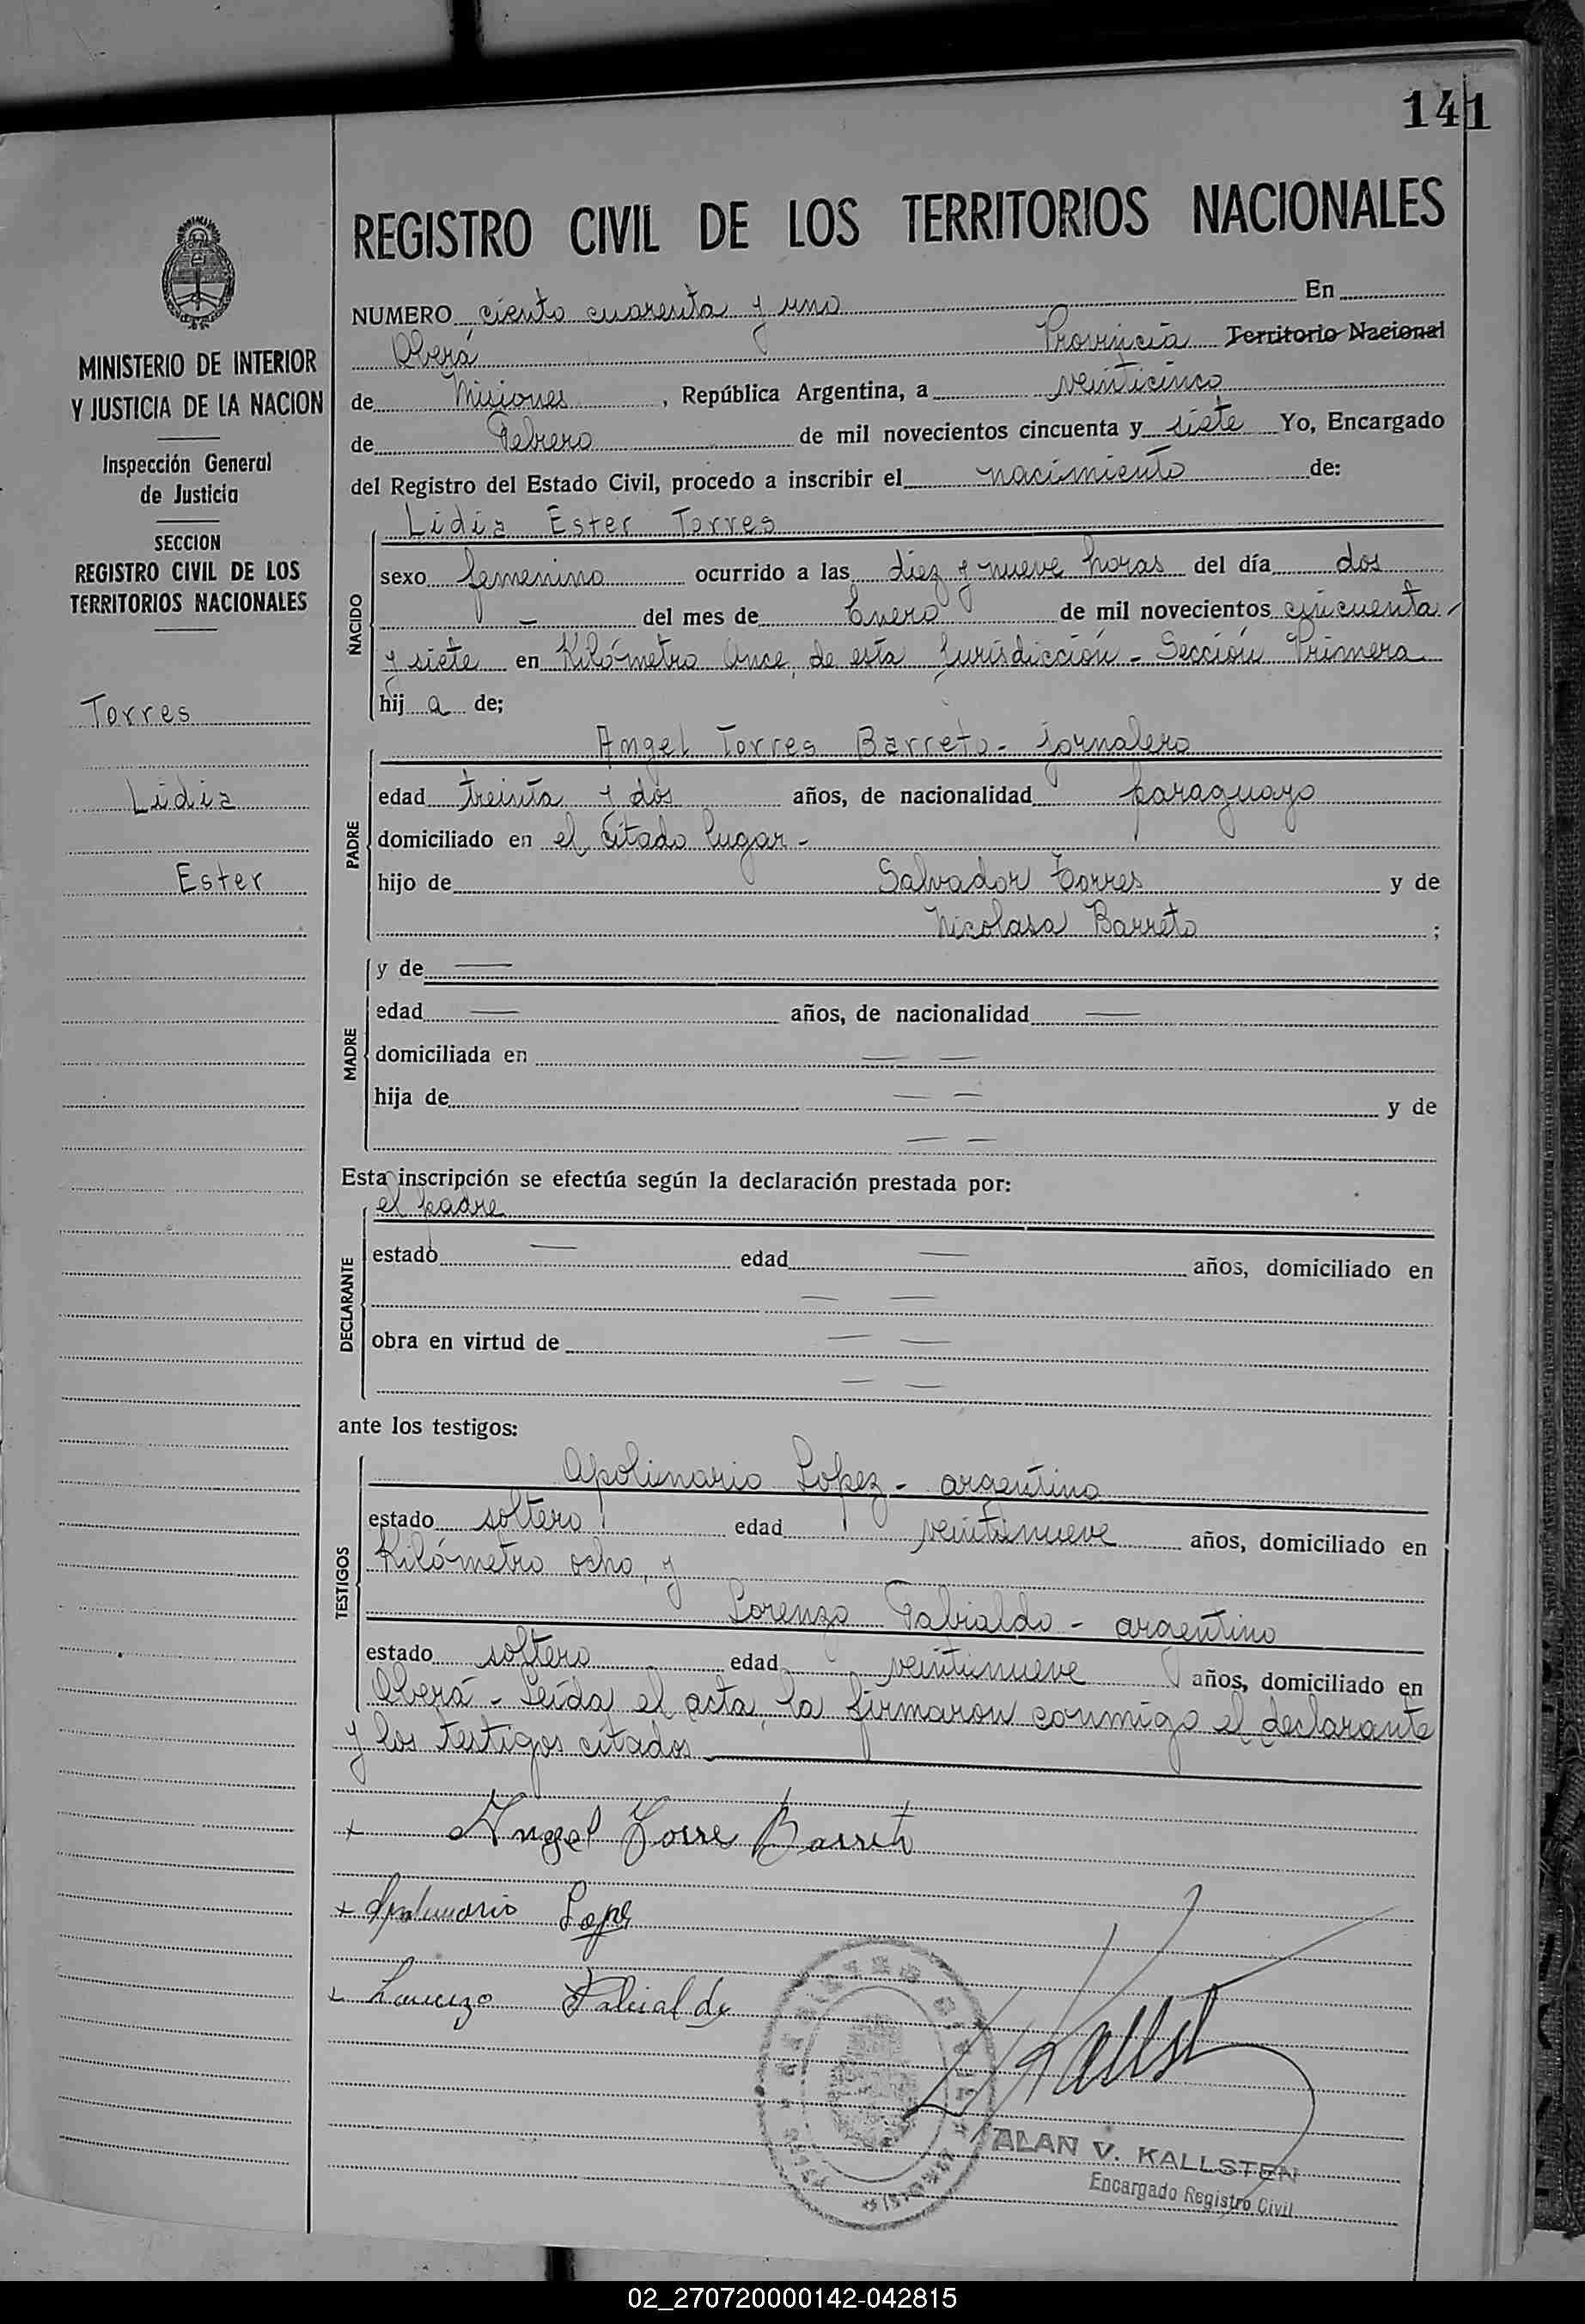 141
REGISTRO CIVIL DE LOS TERRITORIOS NACIONALES
MINISTERIO DE INTERIOR
Y JUSTICIA DE LA NACION
Inspección General
de Justicia
SECCION
REGISTRO CIVIL DE LOS
TERRITORIOS NACIONALES
Torres
Lidia
Ester
NUMERO ciento cuarenta y uno En
Oberá Provincia Territorio Nacional
de Misiones, República Argentina, a veinticinco
de Febrero de mil novecientos cincuenta y siete Yo, Encargado
del Registro del Estado Civil, procedo a inscribir el nacimiento de:
NACIDO
Lidia Ester Torres
sexo femenino ocurrido a las diez y nueve horas del día dos
— del mes de Enero de mil novecientos cincuenta
y siete en Kilómetro Once, de esta Jurisdicción - Sección Primera
hij a de;
PADRE
Angel Torres Barreto - jornalero
edad treinta y dos años, de nacionalidad paraguayo
domiciliado en el citado lugar -
hijo de Salvador Torres y de
Nicolasa Barreto ;
MADRE
y de —
edad — años, de nacionalidad —
domiciliada en — —
hija de — — y de
— —
Esta inscripción se efectúa según la declaración prestada por:
DECLARANTE
el padre
estado — edad — años, domiciliado en
— —
obra en virtud de — —
— —
ante los testigos:
TESTIGOS
Apolinario Lopez - argentino
estado soltero edad veintinueve años, domiciliado en
Kilómetro ocho, y
Lorenzo Fabialdo - argentino
estado soltero edad veintinueve años, domiciliado en
Oberá - Leída el acta, la firmaron conmigo el declarante
y los testigos citados
x Angel Torre Barreto
x Apolinario Lope
x Lorenzo
Kallst
ALAN V. KALLSTEN
Encargado Registro Civil
02_270720000142-042815